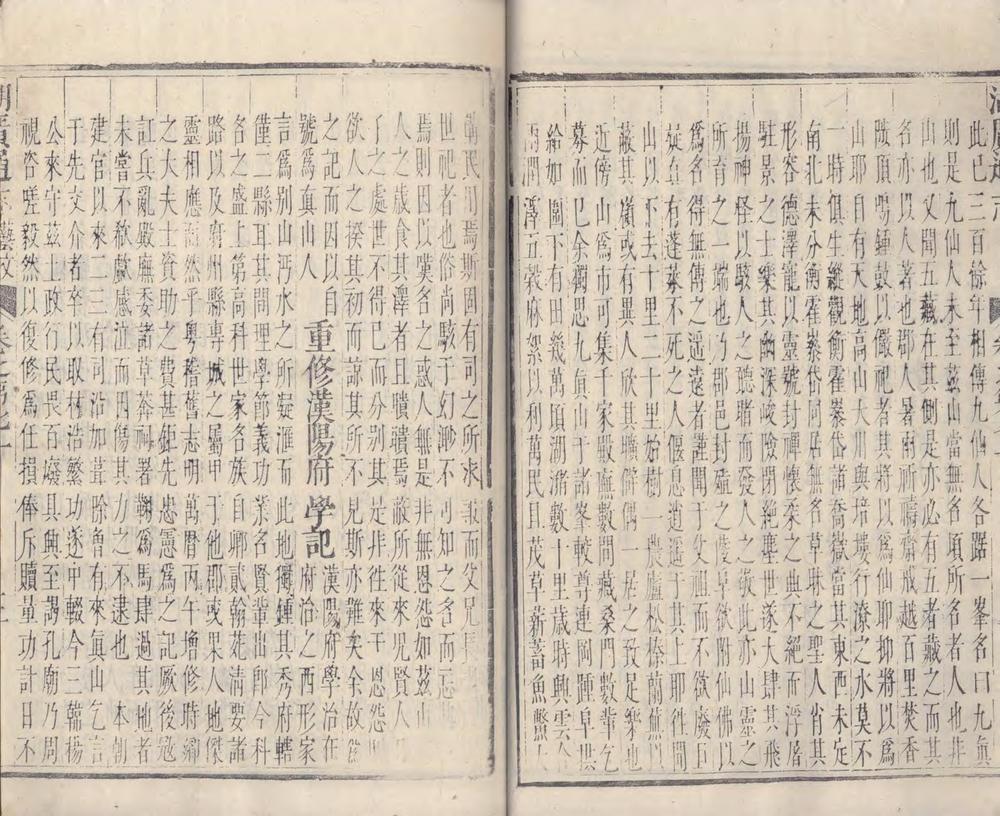 此已三百餘年相傳九仙人各踞一峯名曰九眞
則是九仙人未至茲山當無名項所名者人也非
山也又聞五藏在其側是亦必有五者藏之而其
名亦以人著也郡人暑雨祈禱齋戒越百里焚香
陟頂鳴鍾鼓以儼祀者其將以爲仙耶抑將以爲
山耶自有天地高山大川與培塿行潦之水莫不
一時俱生縱觀衡霍泰岱諸喬嶽當其東西未定
南北未分衡霍泰岱同居無名草昧之聖人肖其
形容德澤寵以靈號封禪懷柔之典不絕而浮屠
駐景之士樂其幽深峻險閉絶塵世遂大肆其飛
揚神怪以駭人之聽睹而發人之敬此亦山靈之
所有一端也乃郡邑封之後早欲附仙佛以
爲名得無傳之遥遠者謹聞于父祖而不欲廢
疑右蓬萊不死之人偃息逍遥于其上耶徃聞
山以下去十里二十里始樹一農廬松榛蘭蕪以
蔽其巓或有異人欣其曠僻偶一居之致足樂也
近傍山爲市可集千家嚴廡數間藏桑門數軰乞
募而亡余獨思九眞山于諸峯較尊連岡踵阜拱
給如圍下有田幾萬頃湖瀦數十里歲時興雲
雨潤澤五穀麻絮以利萬民且茂草薪蓄魚鱉
民用焉斯固有司之所求報而父兄
世祀者也俗尚駭于幻渺不可知之名而忘
焉則因以嘆名之惑人無是非無恩怨如茲山
人之歲食其澤者且聵聵焉蔽所從來況賢人
子之處世不得已而分别其是非徃來干恩怨
欲人之揆其初而諒其所不見斯亦難矣余故
之記而因以自
號爲眞山人
重修漢陽府學記
漢陽府學治在府治之西形家
言爲别山沔水之所凝滙而此地獨鍾其秀府轄
僅二縣耳其間理學節義功業名賢軰出即今科
各之盛上第高科世家各族自卿貳翰苑清要諸
路以及府州縣專城之屬甲于他郡或果人地傑
靈相應而然乎粤稽舊志明萬曆丙午擼修時鄉
之大夫士資助之費甚鉅先忠憲爲之記厥後寇
訌兵亂嚴廡委諸草莽祠署鞠爲馬肆過其地者
未嘗不欷歔感泣而因傷其力之不逮也本朝
建官以來二三有司沿加葺除魯有來眞山乞言
于先交介者卒以取材浩繁功遂中輟今三韓楊
公來守茲土政行民畏百廢具興至謁孔廟乃周
視咨嗟毅然以復修爲任損俸斥贖量功計日不
湖廣通志藝文